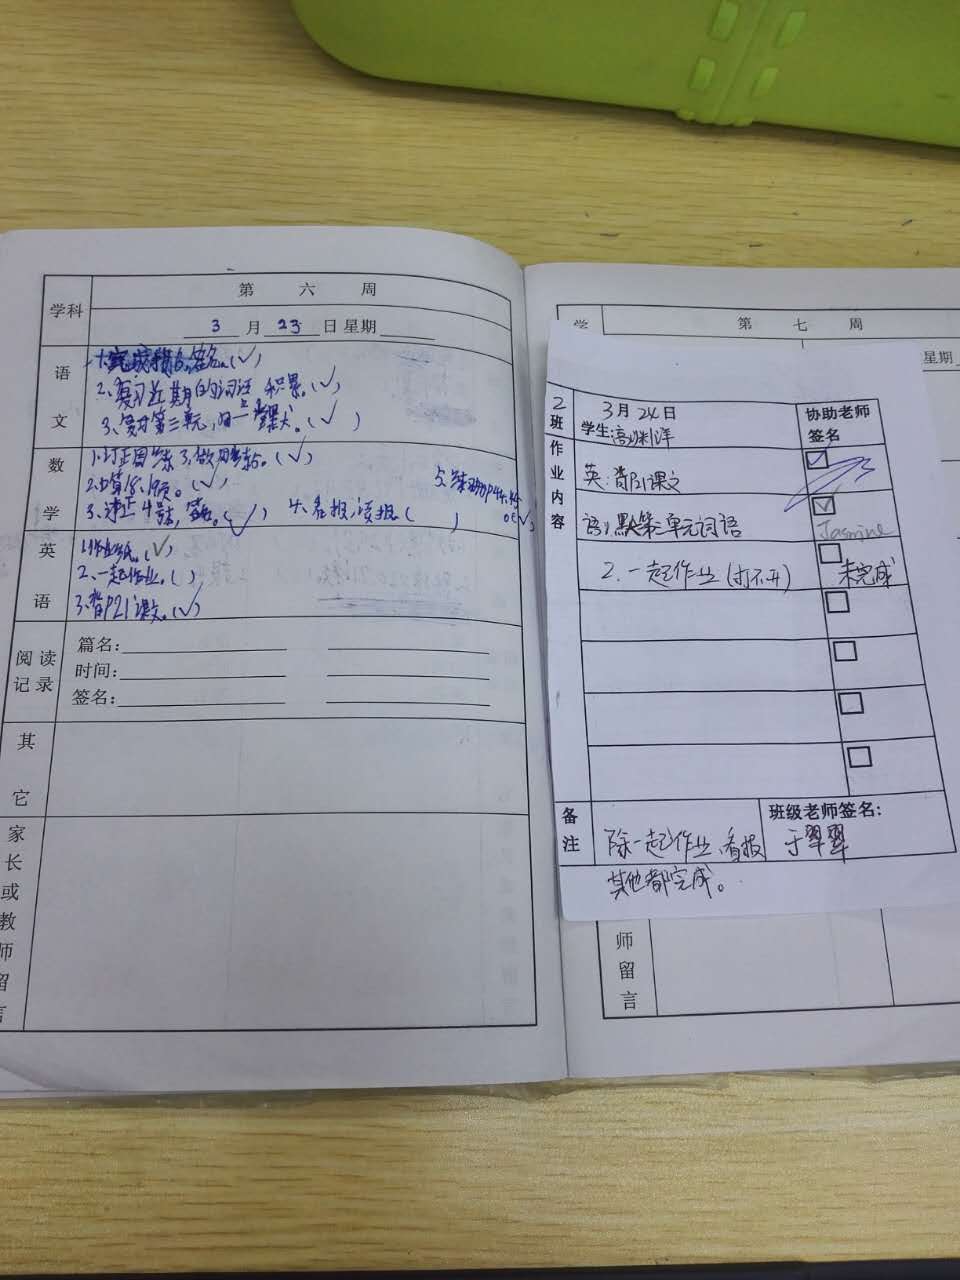 学科
第 六 周
3 月 23 日 星期
语文
1.完成 签名。(√)
2、复习近期的词语 积累。(√)
3、复习第三单元,
(√)
数学
1.订正周练 3.做
(√)
2.口算18.19页。(√)
3、订正4号本,
(√)
4.看报,读报( )
5. P44.45
(√)
英语
1.作业纸。(√)
2.一起作业。( )
3.背P21课文。(√)
阅读记录
篇名:
时间:
签名:
其它
家长或教师留言
学
第 七 周
星期
2班作业内容
3月24日
学生:高 洋
协助老师签名
英:背P21课文
语:默第三单元词语
Jasmine
2.一起作业(打不开)
未完成
备注
除一起作业、看报
其他都完成。
班级老师签名:
于翠翠
师留言